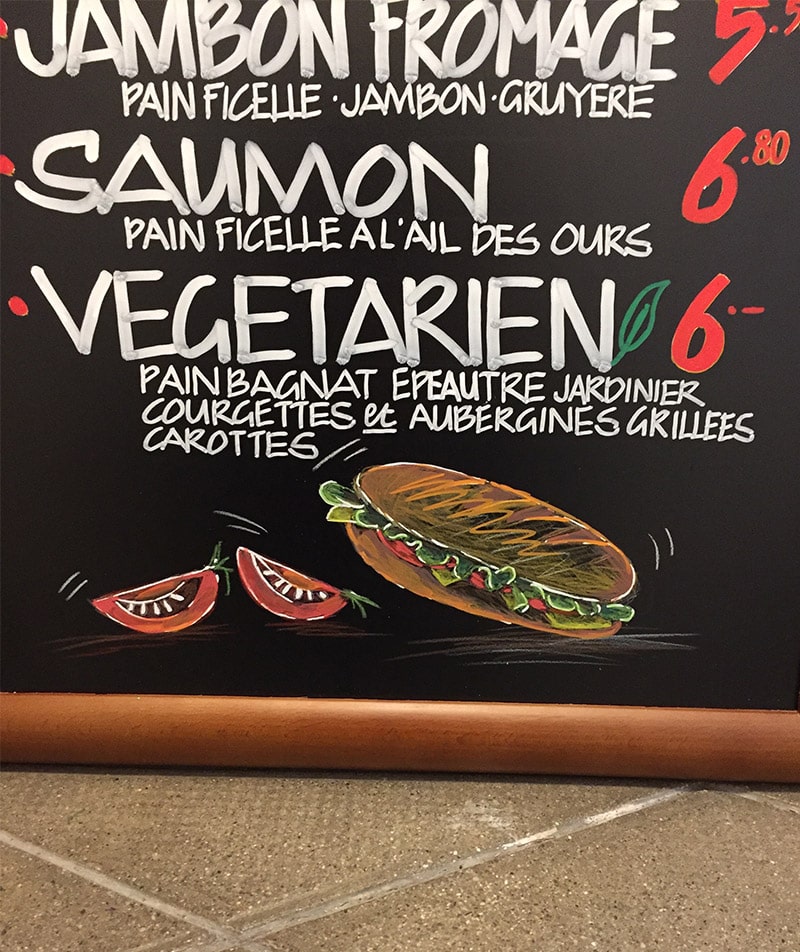 JAMBON FROMAGE 5.5
PAIN FICELLE · JAMBON · GRUYERE
SAUMON 6.80
PAIN FICELLE A L'AIL DES OURS
VEGETARIEN 6.-
PAIN BAGNAT EPEAUTRE JARDINIER
COURGETTES et AUBERGINES GRILLEES
CAROTTES